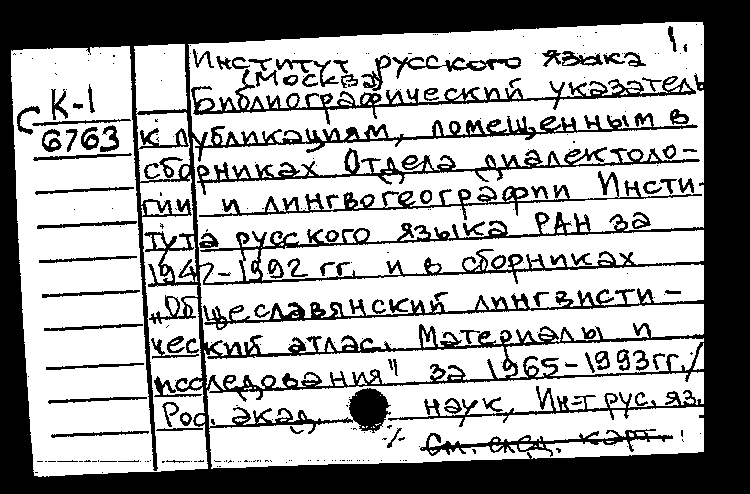 1.
Институт русского языка
(Москва)
Библиографический указатель
С К-1
6763
к публикациям, помещенным в
сборниках Отдела диалектоло-
гии и лингвогеографии Инсти-
тута русского языка РАН за
1947-1992 гг. и в сборниках
„Общеславянский лингвисти-
ческий атлас. Материалы и
исследования" за 1965-1993гг./
Рос. акад. наук, Ин-т рус. яз.
-/- См. след. карт.